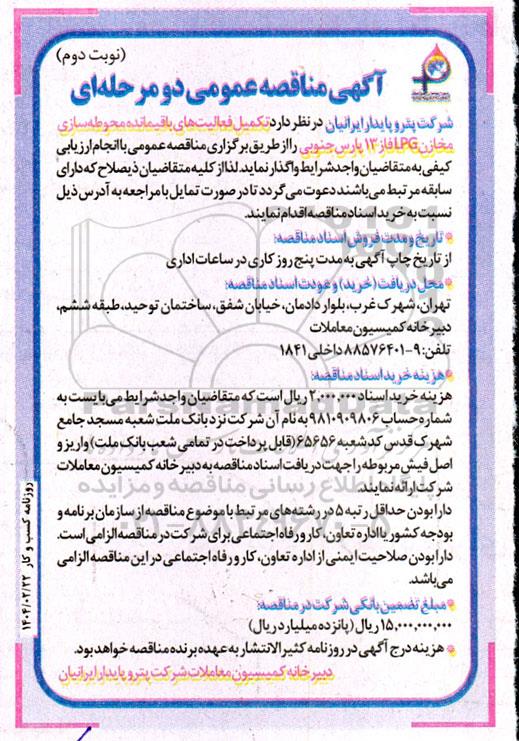 (نوبت دوم)
آگهی مناقصه عمومی دو مرحله‌ای
شرکت پترو پایدار ایرانیان در نظر دارد تکمیل فعالیت‌های باقیمانده محوطه‌سازی
مخازن LPG فاز ۱۳ پارس جنوبی را از طریق برگزاری مناقصه عمومی با انجام ارزیابی
کیفی به متقاضیان واجد شرایط واگذار نماید. لذا از کلیه متقاضیان ذیصلاح که دارای
سابقه مرتبط می‌باشند دعوت می‌گردد تا در صورت تمایل با مراجعه به آدرس ذیل
نسبت به خرید اسناد مناقصه اقدام نمایند.
* تاریخ و مدت فروش اسناد مناقصه:
از تاریخ چاپ آگهی به مدت پنج روز کاری در ساعات اداری
* محل دریافت (خرید) و عودت اسناد مناقصه:
تهران، شهرک غرب، بلوار دادمان، خیابان شفق، ساختمان توحید، طبقه ششم،
دبیرخانه کمیسیون معاملات
تلفن: ۹-۸۸۵۷۶۴۰۱ داخلی ۱۸۴۱
* هزینه خرید اسناد مناقصه:
هزینه خرید اسناد ۲,۰۰۰,۰۰۰ ریال است که متقاضیان واجد شرایط می‌بایست به
شماره حساب ۹۸۱۰۹۰۹۸۰۶ به نام آن شرکت نزد بانک ملت شعبه مسجد جامع
شهرک قدس کد شعبه ۶۵۶۵۶ (قابل پرداخت در تمامی شعب بانک ملت) واریز و
اصل فیش مربوطه را جهت دریافت اسناد مناقصه به دبیرخانه کمیسیون معاملات
شرکت ارائه نمایند.
دارا بودن حداقل رتبه ۵ در رشته‌های مرتبط با موضوع مناقصه از سازمان برنامه و
بودجه کشور یا اداره تعاون، کار و رفاه اجتماعی برای شرکت در مناقصه الزامی است.
دارا بودن صلاحیت ایمنی از اداره تعاون، کار و رفاه اجتماعی در این مناقصه الزامی
می‌باشد.
* مبلغ تضمین بانکی شرکت در مناقصه:
۱۵,۰۰۰,۰۰۰,۰۰۰ ریال (پانزده میلیارد ریال)
* هزینه درج آگهی در روزنامه کثیرالانتشار به عهده برنده مناقصه خواهد بود.
دبیرخانه کمیسیون معاملات شرکت پترو پایدار ایرانیان
روزنامه کسب و کار ۱۴۰۴/۰۲/۲۲
ParsNamadData
پایگاه اطلاع رسانی مناقصه و مزایده
۰۲۱-۸۸۳۴۹۶۷۰-۵